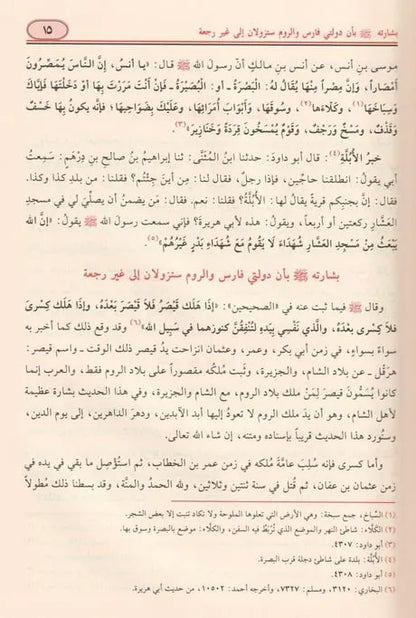 بشارته ﷺ بأن دولتي فارس والروم ستزولان إلى غير رجعة
١٥
موسى بن أنس، عن أنس بن مالك أن رسول الله ﷺ قال: «يا أنسُ، إنَّ النَّاسَ يُمَصِّرُونَ
أمْصَاراً، وَإِنَّ مِصْراً مِنْهَا يُقالُ لهُ: الْبَصْرَةُ ـ أو: الْبُصَيْرَةُ ـ فَإِنْ أَنْتَ مَرَرْتَ بِهَا أَوْ دَخَلْتَهَا فَإيَّاكَ
وَسِبَاخَهَا(١)، وَكَلاءَهَا(٢)، وسُوقَهَا، وَأَبْوَابَ أُمَرَائِهَا، وَعَلَيْكَ بِضَوَاحِيهَا؛ فإنَّه يكونُ بِهَا خَسْفٌ
وَقَذْفٌ، ومَسْخٌ وَرَجْفٌ، وَقَوْمٌ يُمْسَخُونَ قِرَدَةً وَخَنَازِيرَ»(٣).
خبرُ الأُبُلَّةِ(٤): قال أبو داود: حدثنا ابنُ المُثَنَّى: ثنا إبراهيمُ بنُ صالحِ بنِ دِرْهَمٍ: سَمِعتُ
أبي يقولُ: انطلقنا حاجِّين، فإذا رجلٌ، فقال لنا: مِن أينَ جِئتُم؟ فقلنا: من بلدِ كذا وكذا.
فقال: إنَّ بجنبِكم قريةً يقالُ لها: الأُبُلَّةُ؟ فقلنا: نعم. فقال: مَن يضمنُ أن يصلِّيَ لي في مسجدِ
العَشَّارِ ركعتين أو أربعاً، ويقولُ: هذه لأبي هريرةَ؟ فإني سمعت رسول الله ﷺ يقولُ: «إنَّ اللهَ
يَبْعَثُ مِنْ مَسْجِدِ العَشَّارِ شُهَدَاءَ لَا يَقُومُ مَعَ شُهَدَاءِ بَدْرٍ غَيْرُهُمْ»(٥).
بشارته ﷺ بأن دولتي فارس والروم ستزولان إلى غير رجعة
وقال ﷺ فيما ثبت عنه في «الصحيحين»: «إذَا هَلَكَ قَيْصَرُ فَلَا قَيْصَرَ بَعْدَهُ، وَإذَا هَلَكَ كِسْرَى
فلَا كِسرَى بعْدَهُ، والَّذي نَفْسِي بِيَدِهِ لتُنْفِقُنَّ كنوزَهما في سَبِيلِ اللهِ»(٦) وقد وقع ذلك كما أخبر به
سواءً بسواءٍ، في زمن أبي بكر، وعمر، وعثمان انزاحت يدُ قيصر ذلك الوقت ـ واسم قيصر:
هِرَقْل ـ عن بلاد الشام، والجزيرة، وثَبت مُلكُه مقصوراً على بلاد الروم فقط، والعرب إنما
كانوا يُسمُّون قيصرَ لِمَنْ ملك بلاد الروم، مع الشام والجزيرة، وفي هذا الحديث بشارة عظيمة
لأهل الشام، وهو أن يدَ ملك الروم لا تعودُ إليها أبدَ الآبدين، ودهرَ الداهرين، إلى يوم الدين،
وسنُورد هذا الحديث قريباً بإسناده ومتنه، إن شاء الله تعالى.
وأما كسرى فإنه سُلِبَ عامَّةَ مُلكه في زمن عمر بن الخطاب، ثم استُؤصِل ما بقي في يده في
زمن عثمان بن عفان، ثم قُتل في سنة ثنتين وثلاثين، ولله الحمدُ والمنَّة، وقد بسطنا ذلك مطولاً
(١) السِّبَاخ، جمع سبخة: وهي الأرض التي تعلوها الملوحة ولا تكاد تنبت إلا بعض الشجر.
(٢) الكَلَّاء: شاطئ النهر والموضع الذي تُربَطُ فيه السفن، والكلَّاء: موضع بالبصرة وسوق بها.
(٣) أبو داود: ٤٣٠٧.
(٤) الأُبُلَّة: بلدة على شاطئ دجلة قرب البصرة.
(٥) أبو داود: ٤٣٠٨.
(٦) البخاري: ٣١٢٠، ومسلم: ٧٣٢٧، وأخرجه أحمد: ١٠٥٠٢، من حديث أبي هريرة.